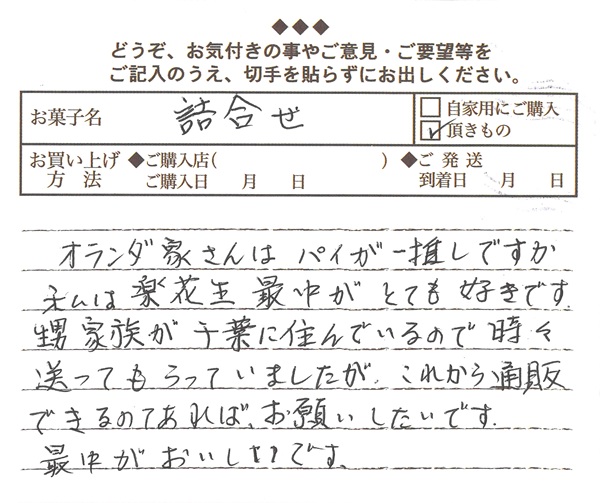 ◆◆◆
どうぞ、お気付きの事やご意見・ご要望等を
ご記入のうえ、切手を貼らずにお出しください。
お菓子名 詰合せ □ 自家用にご購入
☑ 頂きもの
お買い上げ ◆ご購入店( ) ◆ご発送
方法 ご購入日 月 日 到着日 月 日
オランダ家さんは パイが一推しですか
私は楽花生最中がとても好きです.
甥家族が千葉に住んでいるので時々
送ってもらっていましたが、これから通販
できるのであれば、お願いしたいです.
最中がおいしいです。